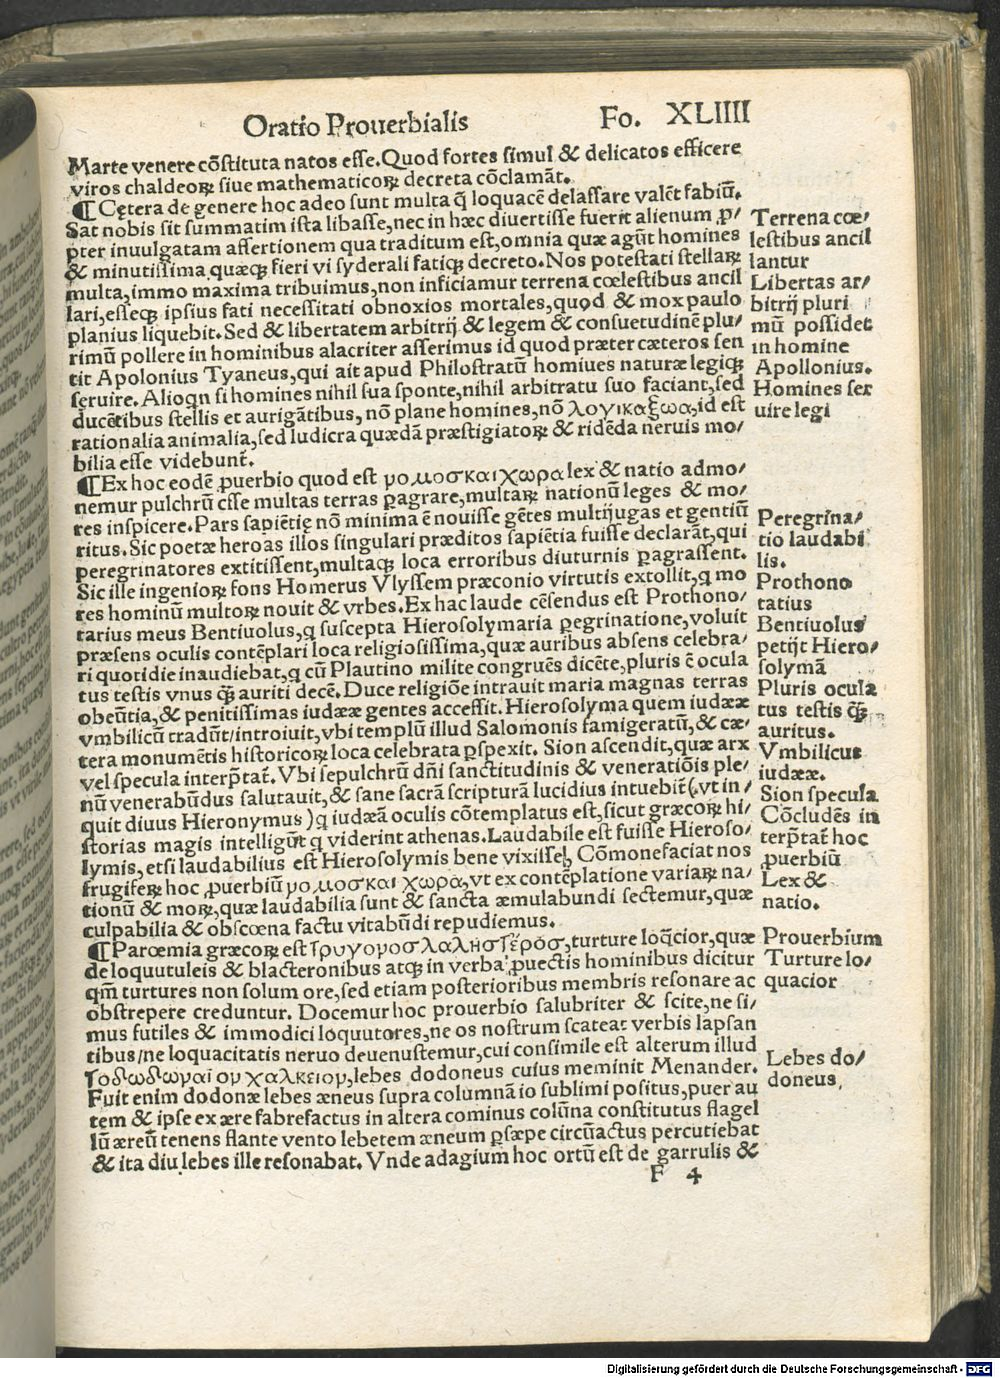 Oratio Prouerbialis Fo. XLIIII
Marte venere cõstituta natos esse. Quod fortes simul & delicatos efficere
viros chaldeoꝝ siue mathematicoꝝ decreta cõclamãt.
¶ Cętera de genere hoc adeo sunt multa q̃ loquacẽ delassare valẽt fabiũ.
Sat nobis sit summatim ista libasse, nec in hæc diuertisse fuerit alienum ꝓ/
pter inuulgatam assertionem qua traditum est, omnia quæ agũt homines
& minutissima quæqꝫ fieri vi syderali fatiqꝫ decreto. Nos potestati stellaꝝ
multa, immo maxima tribuimus, non inficiamur terrena cœlestibus ancil
lari, esseqꝫ ipsius fati necessitati obnoxios mortales, quod & mox paulo
planius liquebit. Sed & libertatem arbitrij & legem & consuetudinẽ plu/
rimũ pollere in hominibus alacriter asserimus id quod præter cæteros sen
tit Apolonius Tyaneus, qui ait apud Philostratũ homiues naturæ legiqꝫ
seruire. Alioqn si homines nihil sua sponte, nihil arbitratu suo faciant, sed
ducẽtibus stellis et aurigãtibus, nõ plane homines, nõ λογικαξωα, id est
rationalia animalia, sed ludicra quædã præstigiatoꝝ & ridẽda neruis mo/
bilia esse videbunt̃.
¶ Ex hoc eodẽ ꝓuerbio quod est νομοσκαι χωρα lex & natio admo/
nemur pulchrũ esse multas terras ꝑagrare, multaꝝ nationũ leges & mo/
res inspicere. Pars sapiẽtię nõ minima ẽ nouisse gẽtes multijugas et gentiũ
ritus. Sic poetæ heroas illos singulari præditos sapiẽtia fuisse declarãt, qui
peregrinatores extitissent, multaqꝫ loca erroribus diuturnis ꝑagrassent.
Sic ille ingenioꝝ fons Homerus Vlyssem præconio virtutis extollit, q mo
res hominũ multoꝝ nouit & vrbes. Ex hac laude cẽsendus est Prothono/
tarius meus Bentiuolus, q suscepta Hierosolymaria ꝑegrinatione, voluit
præsens oculis contẽplari loca religiosissima, quæ auribus absens celebra/
ri quotidie inaudiebat, q cũ Plautino milite congruẽs dicẽte, pluris ẽ ocula
tus testis vnus q̃ꝫ auriti decẽ. Duce religiõe intrauit maria magnas terras
obeũtia, & penitissimas iudææ gentes accessit. Hierosolyma quem iudææ
vmbilicũ tradũt/introiuit, vbi templũ illud Salomonis famigeratũ, & cæ/
tera monumẽtis historicoꝝ loca celebrata ꝑspexit. Sion ascendit, quæ arx
vel specula interp̃tat̃. Vbi sepulchrũ dñi sanctitudinis & veneratiõis ple/
nũ venerabũdus salutauit, & sane sacrã scripturã lucidius intuebit̃(, vt in/
quit diuus Hieronymus) q iudæã oculis cõtemplatus est, sicut græcoꝝ hi/
storias magis intelligũt q viderint athenas. Laudabile est fuisse Hieroso/
lymis, etsi laudabilius est Hierosolymis bene vixisse, Cõmonefaciat nos
frugifeꝝ hoc ꝓuerbiũ νομοσκαι χωρα, vt ex contẽplatione variaꝝ na/
tionũ & moꝝ, quæ laudabilia sunt & sancta æmulabundi sectemur, quæ
culpabilia & obscœna factu vitabũdi repudiemus.
¶ Parœmia græcoꝝ est τρυγονοσ λαλήστερόσ, turture loq̃cior, quæ
de loquutuleis & blacteronibus atqꝫ in verba ꝓuectis hominibus dicitur
qm̃ turtures non solum ore, sed etiam posterioribus membris resonare ac
obstrepere creduntur. Docemur hoc prouerbio salubriter & scite, ne si/
mus futiles & immodici loquutores, ne os nostrum scateat verbis lapsan
tibus/ne loquacitatis neruo deuenustemur, cui consimile est alterum illud
τοδωδωναῖον χαλκειον, lebes dodoneus cuius meminit Menander.
Fuit enim dodonæ lebes æneus supra columnã io sublimi positus, puer au
tem & ipse ex ære fabrefactus in altera cominus colũna constitutus flagel
lũ æreũ tenens flante vento lebetem æneum ꝑsæpe circũactus percutiebat
& ita diu lebes ille resonabat. Vnde adagium hoc ortũ est de garrulis &
F 4
Terrena cœ/
lestibus ancil
lantur
Libertas ar/
bitrij pluri
mũ possidet
in homine
Apollonius.
Homines ser
uire legi
Peregrina/
tio laudabi
lis.
Prothono
tatius
Bentiuolus
petijt Hiero/
solymã
Pluris ocula
tus testis q̃ꝫ
auritus.
Vmbilicus
iudææ.
Sion specula
Cõcludẽs in
terp̃tat̃ hoc
ꝓuerbiũ
Lex &
natio.
Prouerbium
Turture lo/
quacior
Lebes do/
doneus,
Digitalisierung gefördert durch die Deutsche Forschungsgemeinschaft - DFG